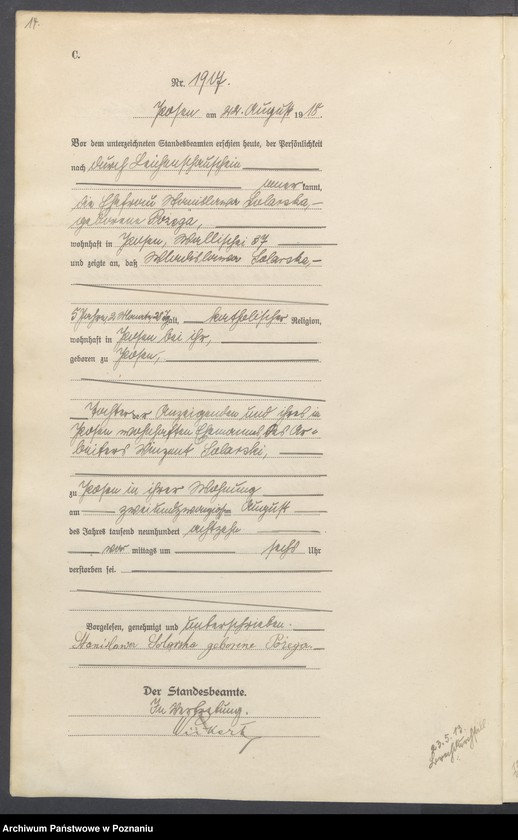 14.
C.
Nr. 1917.
Posen am 22. August 1918.
Vor dem unterzeichneten Standesbeamten erschien heute, der Persönlichkeit
nach durch Leichenschauschein
aner kannt,
die Ehefrau Stanislawa Solarska,
geborene
wohnhaft in Posen, Wallischei 37
und zeigte an, daß Wladislawa Solarska,
5 Jahre, 2 Monate alt, katholischer Religion,
wohnhaft in Posen bei ihr,
geboren zu Posen,
Tochter der Anzeigenden und ihres in
Posen wohnhaften Ehemannes des Ar-
beiters Vinzent Solarski,
zu Posen in ihrer Wohnung
am zweiundzwanzigsten August
des Jahres tausend neunhundert achtzehn
vor mittags um sechs Uhr
verstorben sei.
Vorgelesen, genehmigt und unterschrieben.
Stanisława Solarska geborene
Der Standesbeamte.
In Vertretung.
23.5.13.
Archiwum Państwowe w Poznaniu